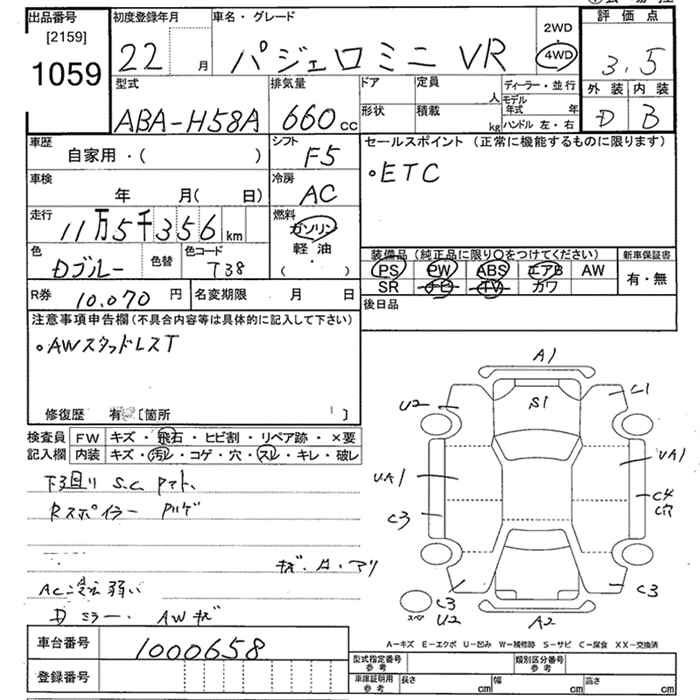 出品番号 初度登録年月 車名・グレード 評価点
[2159] 22 月 パジェロミニ VR 2WD 4WD 3.5
1059
型式 排気量 ドア 定員 人 ディーラー・並行 外装 内装
ABA-H58A 660cc 形状 積載 kg モデル年式 年 D B
ハンドル 左・右
車歴 シフト セールスポイント(正常に機能するものに限ります)
自家用・( ) F5 ・ETC
車検 冷房
年 月( 日) AC
走行 燃料
11万5千356km ガソリン
軽油
・( )
色 色替 色コード 装備品(純正品に限り○をつけてください) 新車保証書
Dブルー T38 PS PW ABS エアB AW 有・無
SR ナビ TV カワ
R券 10.070円 名変期限 月 日 後日品
注意事項申告欄(不具合内容等は具体的に記入して下さい)
・AWスタッドレスT
修復歴 有 [箇所 ]
検査員 FW キズ・飛石・ヒビ割・リペア跡・×要
記入欄 内装 キズ・汚レ・コゲ・穴・スレ・キレ・破レ
下廻り S.C
Rスポイラー
AC冷え弱い
Dミラー・AWキズ
A1
U2 S1 C1
UA1 UA1
C3 C4
穴
C3 C3
U2
スペア
A2
A-キズ E-エクボ U-凹み W-補修跡 S-サビ C-腐食 XX-交換済
車台番号 1000658
登録番号
型式指定番号 参考 類別区分番号 参考
車庫証明用 参考 長さ cm 幅 cm 高さ cm